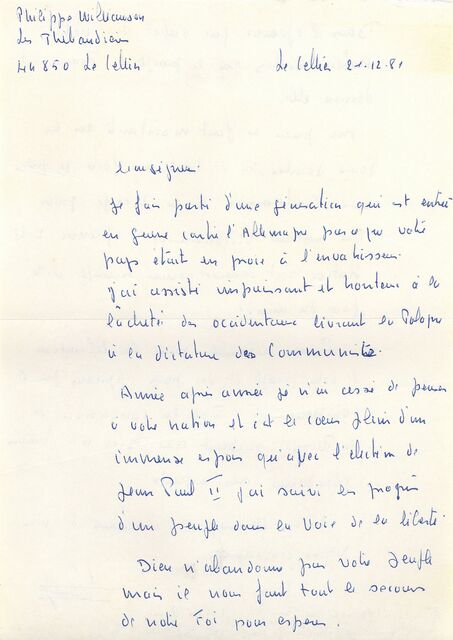 Philippe Williamson
Les Thébaudières
44850 Le Cellier
Le Cellier 21.12.81
Monseigneur
Je fais parti d'une génération qui est entrée
en guerre contre l'Allemagne parce que votre
pays était en proie à l'envahisseur.
J'ai assisté impuissant et honteux à la
lâcheté des occidentaux livrant la Pologne
à la dictature des Communistes.
Année après année je n'ai cessé de penser
à votre nation et c'est le cœur plein d'un
immense espoir qu'après l'élection de
Jean Paul II j'ai suivi les progrès
d'un peuple dans la voie de la liberté.
Dieu n'abandonne pas votre peuple
mais il nous faut tout le secours
de notre Foi pour espérer.